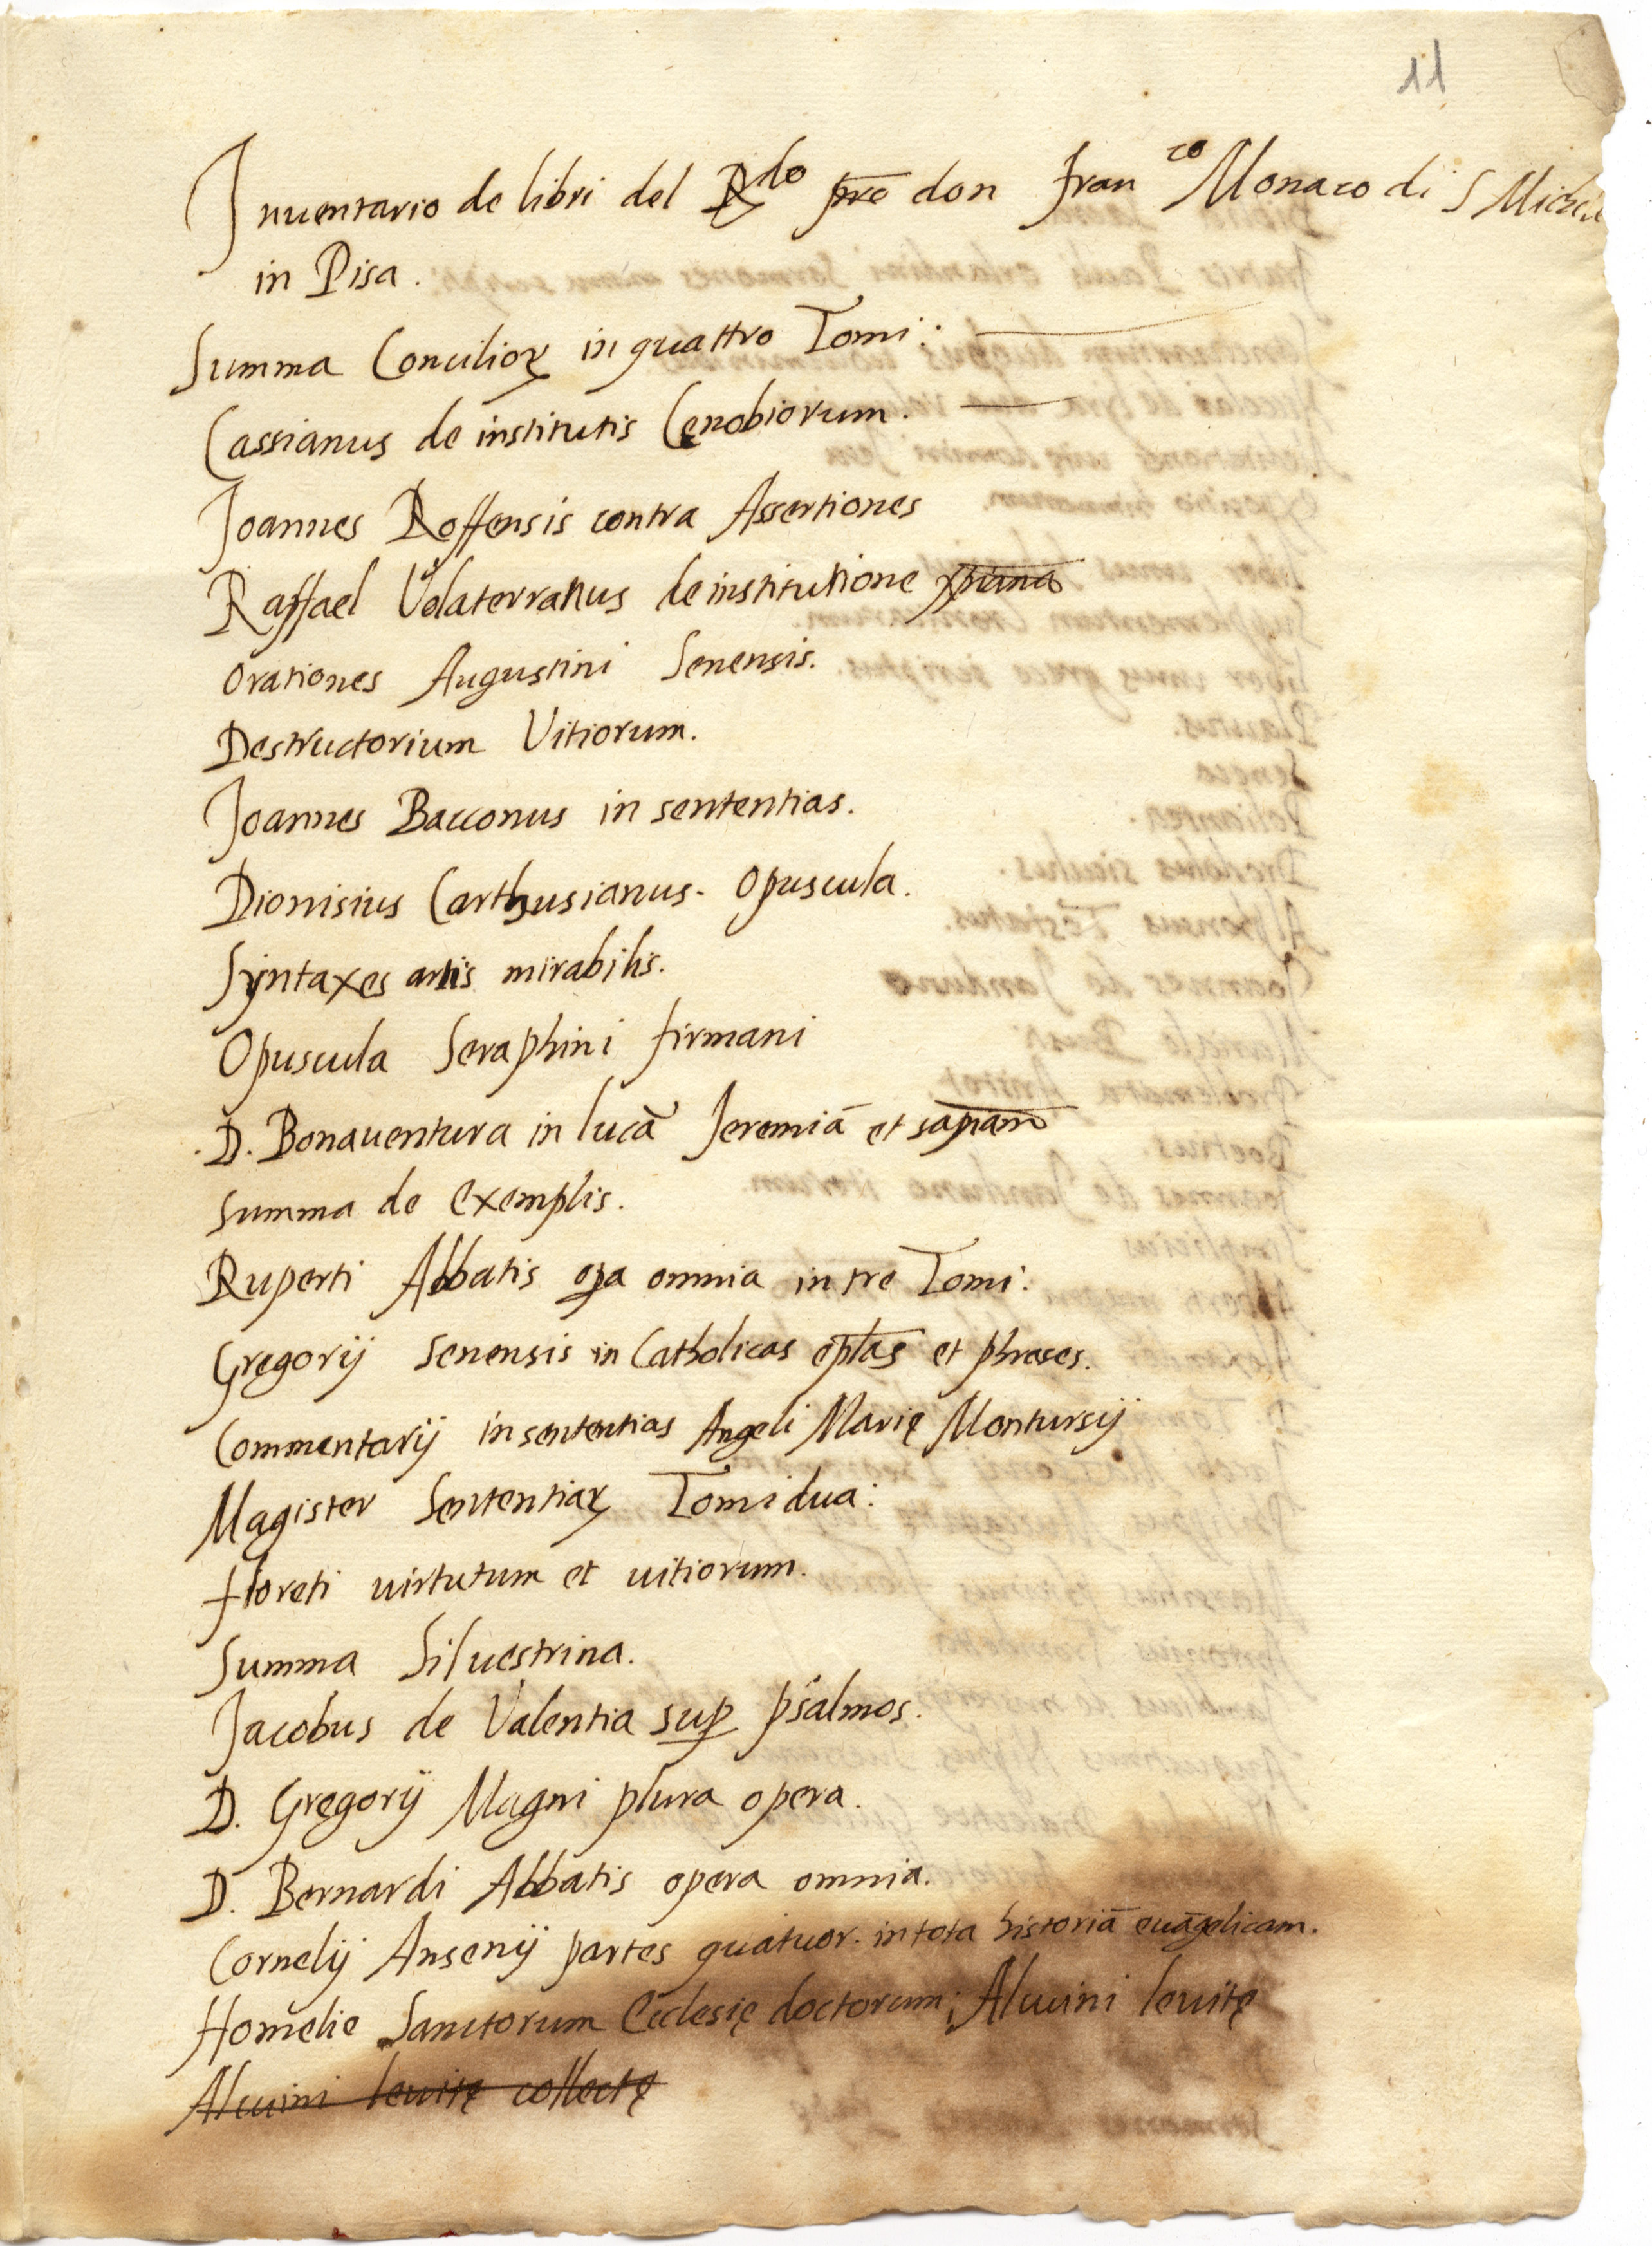 11
Inuentario de libri del R^do pre don Fran^co Monaco di S Michele
in Pisa.
Summa Conciliorꝝ in quattro Tomi: —
Cassianus de institutis Cenobiorum. —
Joannes Roffensis contra Assertiones
Raffael Volaterranus de institutione xpiana
Orationes Augustini Senensis.
Destructorium Vitiorum.
Joannes Bacconus in sententias.
Dionisius Carthusianus. Opuscula.
Syntaxes artis mirabilis.
Opuscula Seraphini firmani
D. Bonauentura in lucā Jeremiā et sapiam
Summa de Exemplis.
Ruperti Abbatis opa omnia in tre Tomi:
Gregorij Senensis in Catholicas eplas et phrases.
Commentarij in sententias Angeli Marię Montursij
Magister Sententiaꝝ Tomi dua:
floreti uirtutum et uitiorum.
Summa Siluestrina.
Jacobus de Valentia sup psalmos.
D. Gregorij Magni plura opera.
D. Bernardi Abbatis opera omnia.
Cornelij Ansenij partes quatuor. in tota historiā euāgelicam.
Homelie Sanctorum Ecclesię doctorum; Alcuini leuitę
Alcuini leuitę collectę